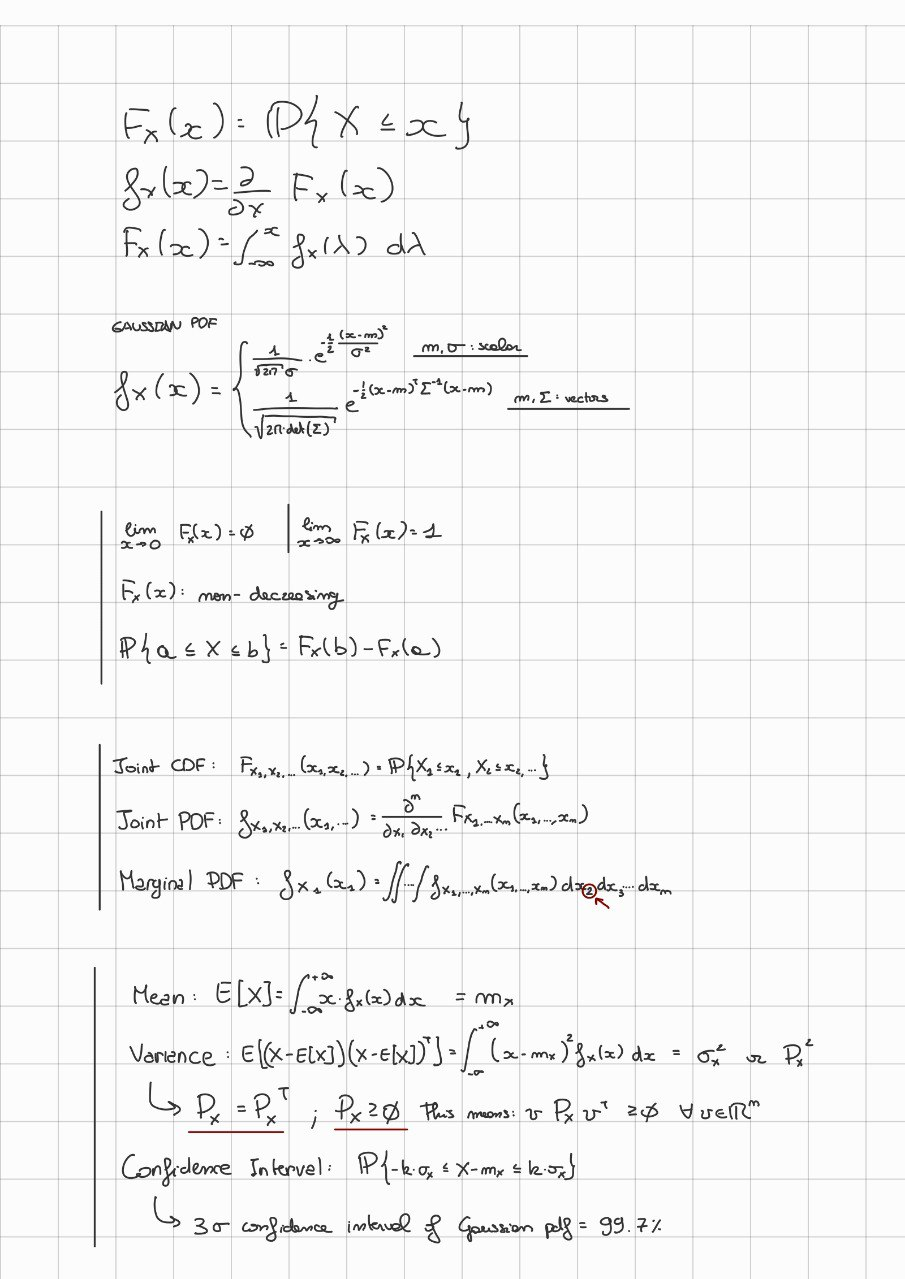 F_X(x) = ℙ{X ≤ x}
f_X(x) = ∂/∂x F_X(x)
F_X(x) = ∫_{-∞}^{x} f_X(λ) dλ
GAUSSIAN PDF
f_X(x) = { 1/(√2π σ) · e^{-1/2 (x-m)²/σ²}   m, σ : scalar
1/√(2π·det(Σ)) e^{-1/2 (x-m)^T Σ^{-1} (x-m)}   m, Σ : vectors
lim_{x→0} F_X(x) = ∅ | lim_{x→∞} F_X(x) = 1
F_X(x): non-decreasing
ℙ{a ≤ X ≤ b} = F_X(b) - F_X(a)
Joint CDF: F_{X₁,X₂,...}(x₁,x₂,...) = ℙ{X₁ ≤ x₁, X₂ ≤ x₂, ...}
Joint PDF: f_{X₁,X₂,...}(x₁,...) = ∂ⁿ/(∂x₁ ∂x₂ ...) F_{X₁,...Xₙ}(x₁,...,xₙ)
Marginal PDF: f_{X₁}(x₁) = ∫∫...∫ f_{X₁,...,Xₙ}(x₁,...,xₙ) dx₂ dx₃ ... dxₙ
Mean: E[X] = ∫_{-∞}^{+∞} x · f_X(x) dx = m_x
Variance: E[(X-E[X])(X-E[X])^T] = ∫_{-∞}^{+∞} (x-m_x)² f_X(x) dx = σ_x² or P_x²
↳ P_x = P_x^T ; P_x ≥ ∅ This means: v P_x v^T ≥ ∅ ∀ v ∈ ℝⁿ
Confidence Interval: ℙ{-k·σ_x ≤ X-m_x ≤ k·σ_x}
↳ 3σ confidence interval of Gaussian pdf = 99.7%